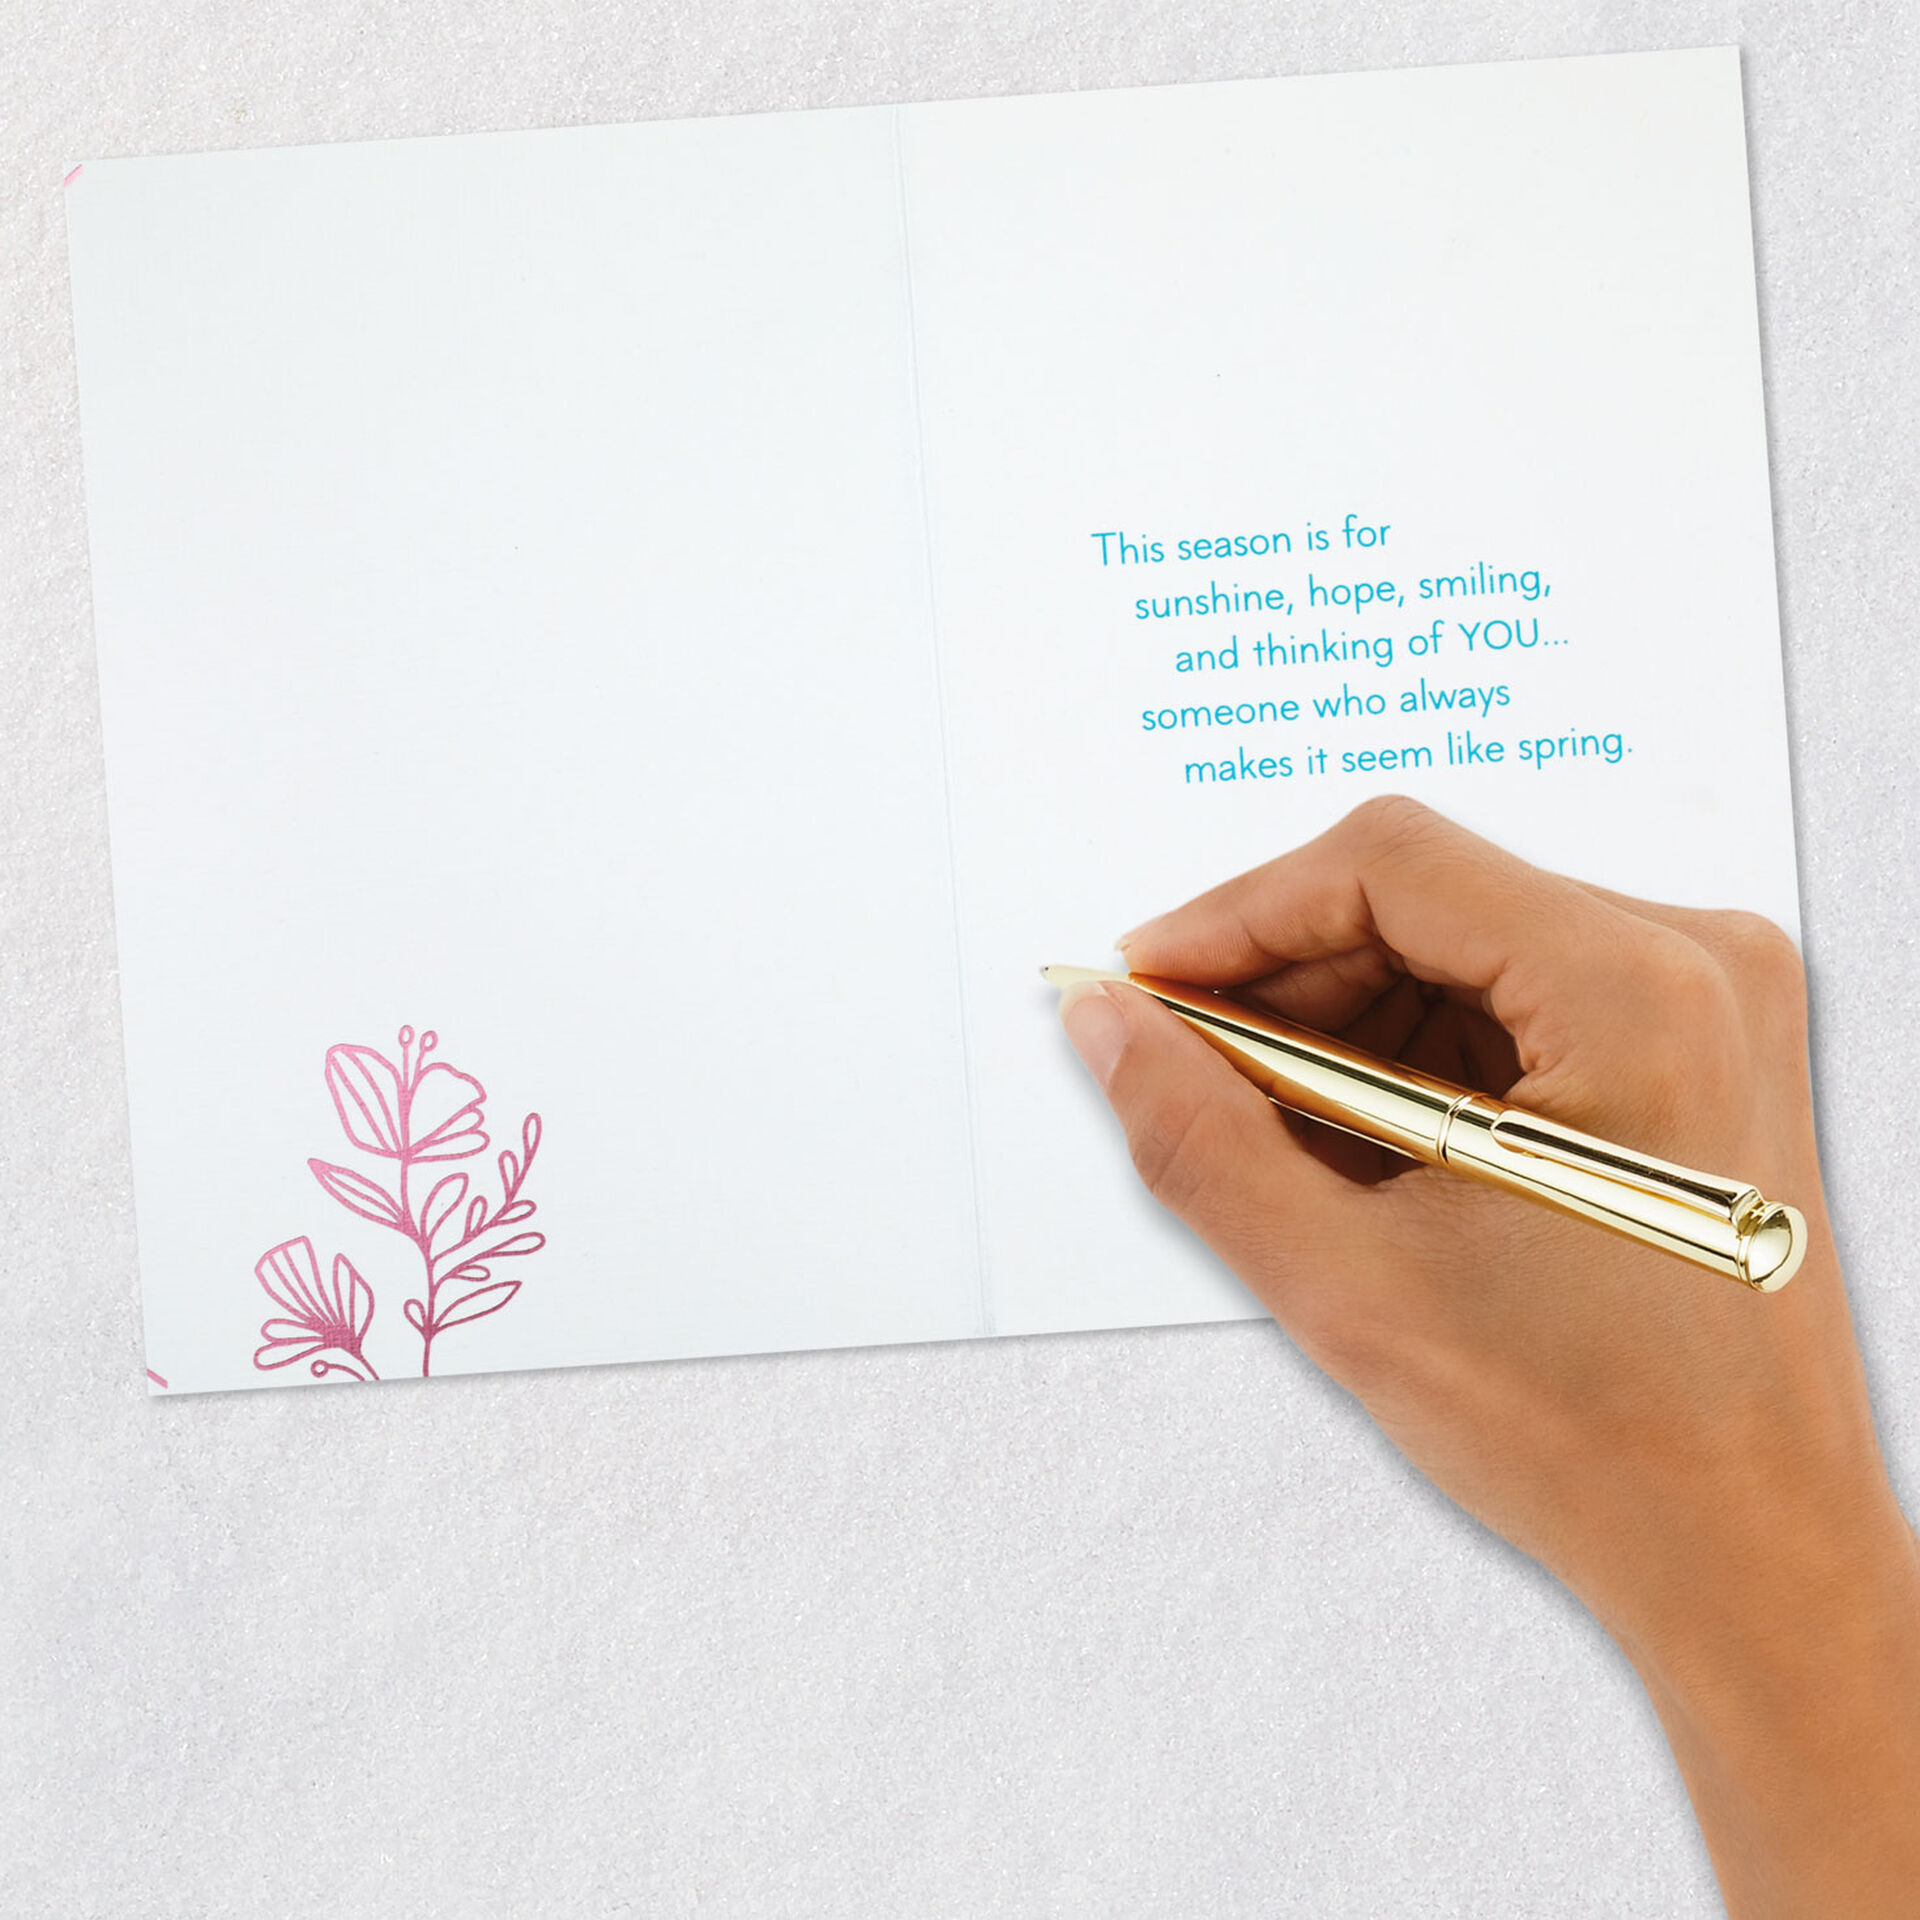 This season is for
sunshine, hope, smiling,
and thinking of YOU...
someone who always
makes it seem like spring.